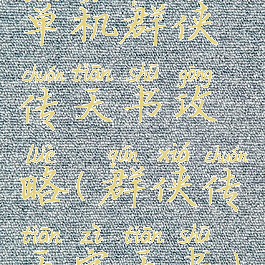 单机群侠
chuán tiān shū gōng
传天书攻
lüè qún xiá chuán
略(群侠传
tiān zì tiān shū